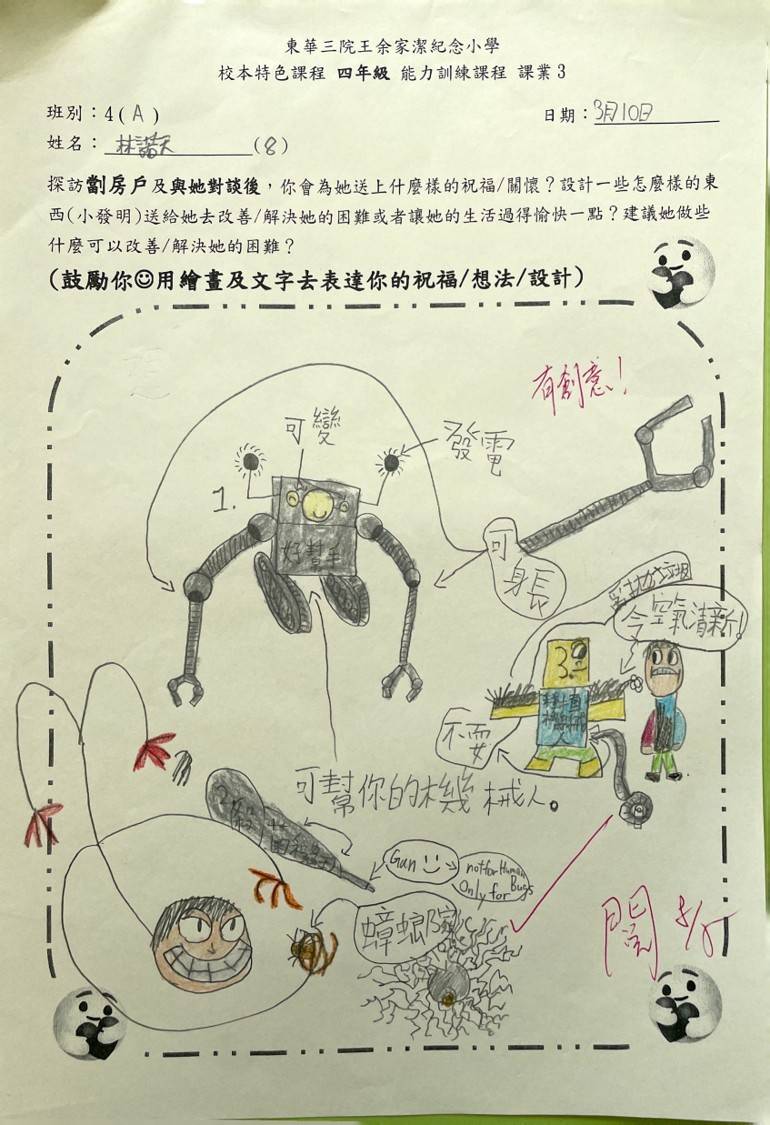 東華三院王余家潔紀念小學
校本特色課程 四年級 能力訓練課程 課業3
班別：4( A )
日期：3月10日
姓名：林諾天(8)
探訪劏房戶及與她對談後，你會為她送上什麼樣的祝福/關懷？設計一些怎麼樣的東
西(小發明)送給她去改善/解決她的困難或者讓她的生活過得愉快一點？建議她做些
什麼可以改善/解決她的困難？
(鼓勵你☺用繪畫及文字去表達你的祝福/想法/設計)
有創意！
可變
發電
1.
好幫手
可
身長
垃圾
令空氣清新！
3.
不要
可幫你的機械人。
2.
Gun
not for Human
Only for Bugs
蟑螂
閱